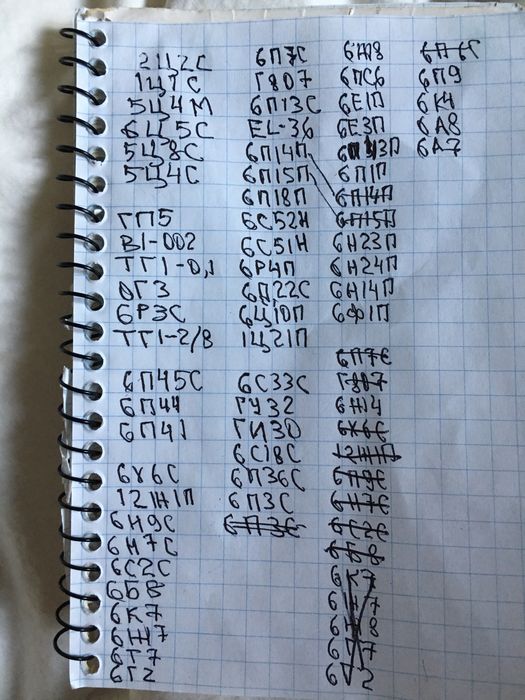 2Ц2С
1Ц1С
5Ц4М
6Ц5С
5Ц8С
5Ц4С
ГП5
В1-002
ТГ1-0,1
ОГ3
6Р3С
ТГ1-2/8
6П45С
6П44
6П41
6Х6С
12Ж1П
6Н9С
6Н7С
6С2С
6Б8
6К7
6Ж7
6Г7
6Г2
6П7С
Г807
6П13С
EL-36
6П14П
6П15П
6П18П
6С52Н
6С51Н
6Р4П
6Д22С
6Ц10П
1Ц21П
6С33С
ГУ32
ГИ30
6С18С
6П36С
6П3С
6П3С
6Ж8
6ПС6
6Е1П
6Е3П
6П1П
6П14П
6П15П
6Н23П
6Н24П
6Н14П
6Ф1П
6П7С
Г807
6Ж4
6Х6С
12Ж1П
6Н9С
6Н7С
6С2С
6Б8
6К7
6П6С
6П9
6К4
6А8
6А7